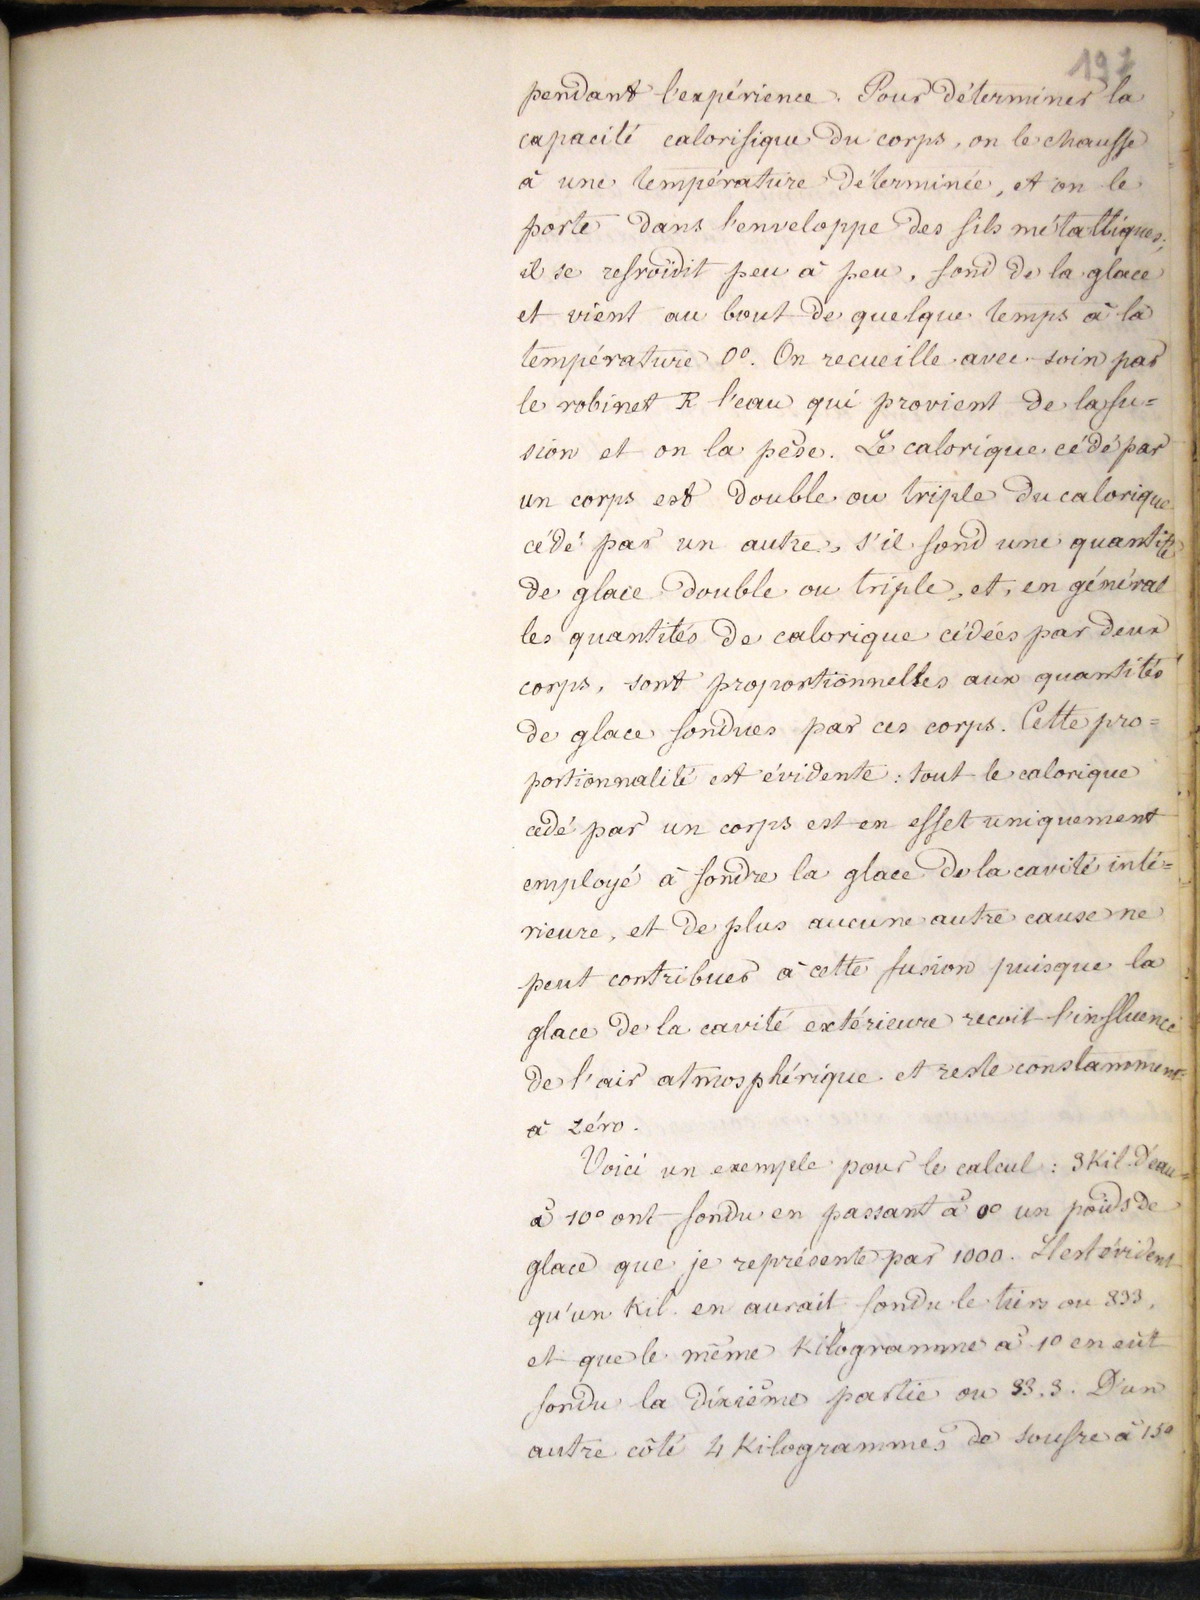 197
pendant l'expérience. Pour déterminer la
capacité calorifique du corps, on le chauffe
à une température déterminée, et on le
porte dans l'enveloppe des fils métalliques;
il se refroidit peu à peu, fond de la glace
et vient au bout de quelque temps à la
température 0°. On recueille avec soin par
le robinet R l'eau qui provient de la fu=
sion et on la pèse. Le calorique cédé par
un corps est double ou triple du calorique
cédé par un autre, s'il fond une quantité
de glace double ou triple, et, en général
les quantités de calorique cédées par deux
corps, sont proportionnelles aux quantités
de glace fondues par ces corps. Cette pro=
portionnalité est évidente : tout le calorique
cédé par un corps est en effet uniquement
employé à fondre la glace de la cavité inté=
rieure, et de plus aucune autre cause ne
peut contribuer à cette fusion puisque la
glace de la cavité extérieure reçoit l'influence
de l'air atmosphérique et reste constamment
à zéro.
Voici un exemple pour le calcul : 3 Kil. d'eau
à 10° ont fondu en passant à 0° un poids de
glace que je représente par 1000. Il est évident
qu'un Kil. en aurait fondu le tiers ou 333,
et que le même Kilogramme à 1° en eût
fondu la dixième partie ou 33.3. D'un
autre côté 4 Kilogrammes de soufre à 15°